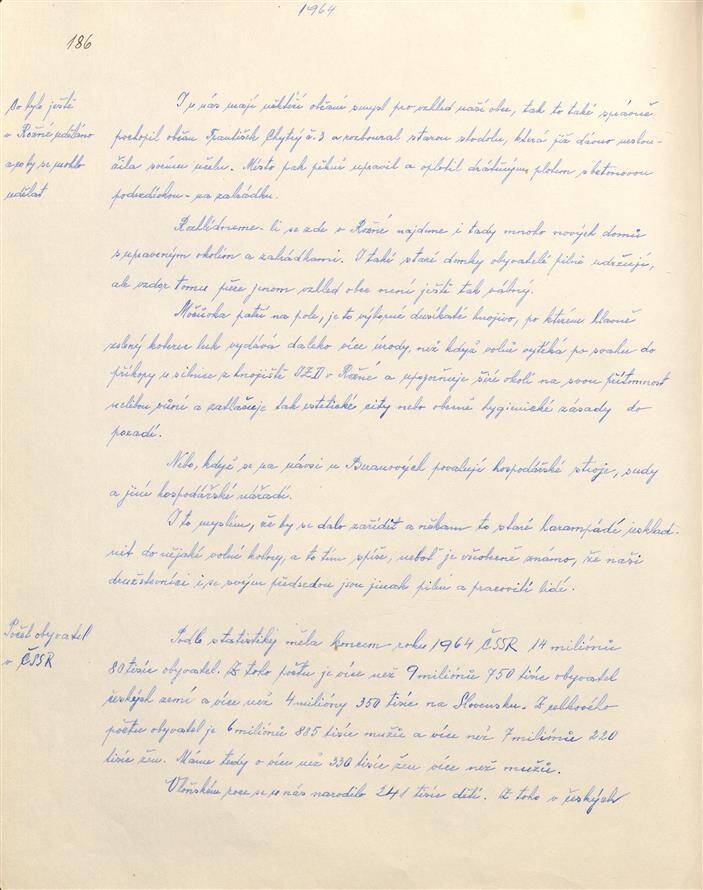 1964
186
Co bylo ještě
v Rožné uděláno
a co by se mohlo
udělat
I u nás mají někteří občané smysl pro vzhled naší obce, tak to také správně
postoupil občan František Chytrý č. 3 a rozboural starou stodolu, která již dávno neslou-
žila svému účelu. Místo pak pěkně upravil a oplotil drátěným plotem s betonovou
podezdívkou - na zahrádku.
Rozhlédneme-li se zde v Rožné najdeme i tady mnoho nových domů
s upraveným okolím a zahrádkami. I také staré domky obyvatelé pilně udržují,
ale vzdor tomu přece jenom vzhled obce není ještě tak vábný.
Močůvka patří na pole, je to výborné dusíkaté hnojivo, po kterém hlavně
zelený koberec luk vydává daleko více úrody, než když volně vytéká po svahu do
příkopy u silnice z hnojiště JZD v Rožné a upozorňuje širé okolí na svou přítomnost
nelibou vůní a zatlačuje tak estetické city nebo obecně hygienické zásady do
pozadí.
Nebo, když se na návsi u Buranových povalují hospodářské stroje, sudy
a jiné hospodářské nářadí.
I to myslím, že by se dalo zařídit a někam to staré harampádí usklad-
nit do nějaké volné kolny, a to tím spíše, neboť je všeobecně známo, že naši
družstevníci i se svým předsedou jsou jinak pilní a pracovití lidé.
Počet obyvatel
v ČSSR
Podle statistiky měla koncem roku 1964 ČSSR 14 miliónů
80 tisíc obyvatel. Z toho počtu je více než 9 miliónů 750 tisíc obyvatel
českých zemí a více než 4 milióny 350 tisíc na Slovensku. Z celkového
počtu obyvatel je 6 miliónů 885 tisíc mužů a více než 7 miliónů 220
tisíc žen. Máme tedy o více než 330 tisíc žen více než mužů.
V loňském roce se u nás narodilo 241 tisíc dětí. Z toho v českých